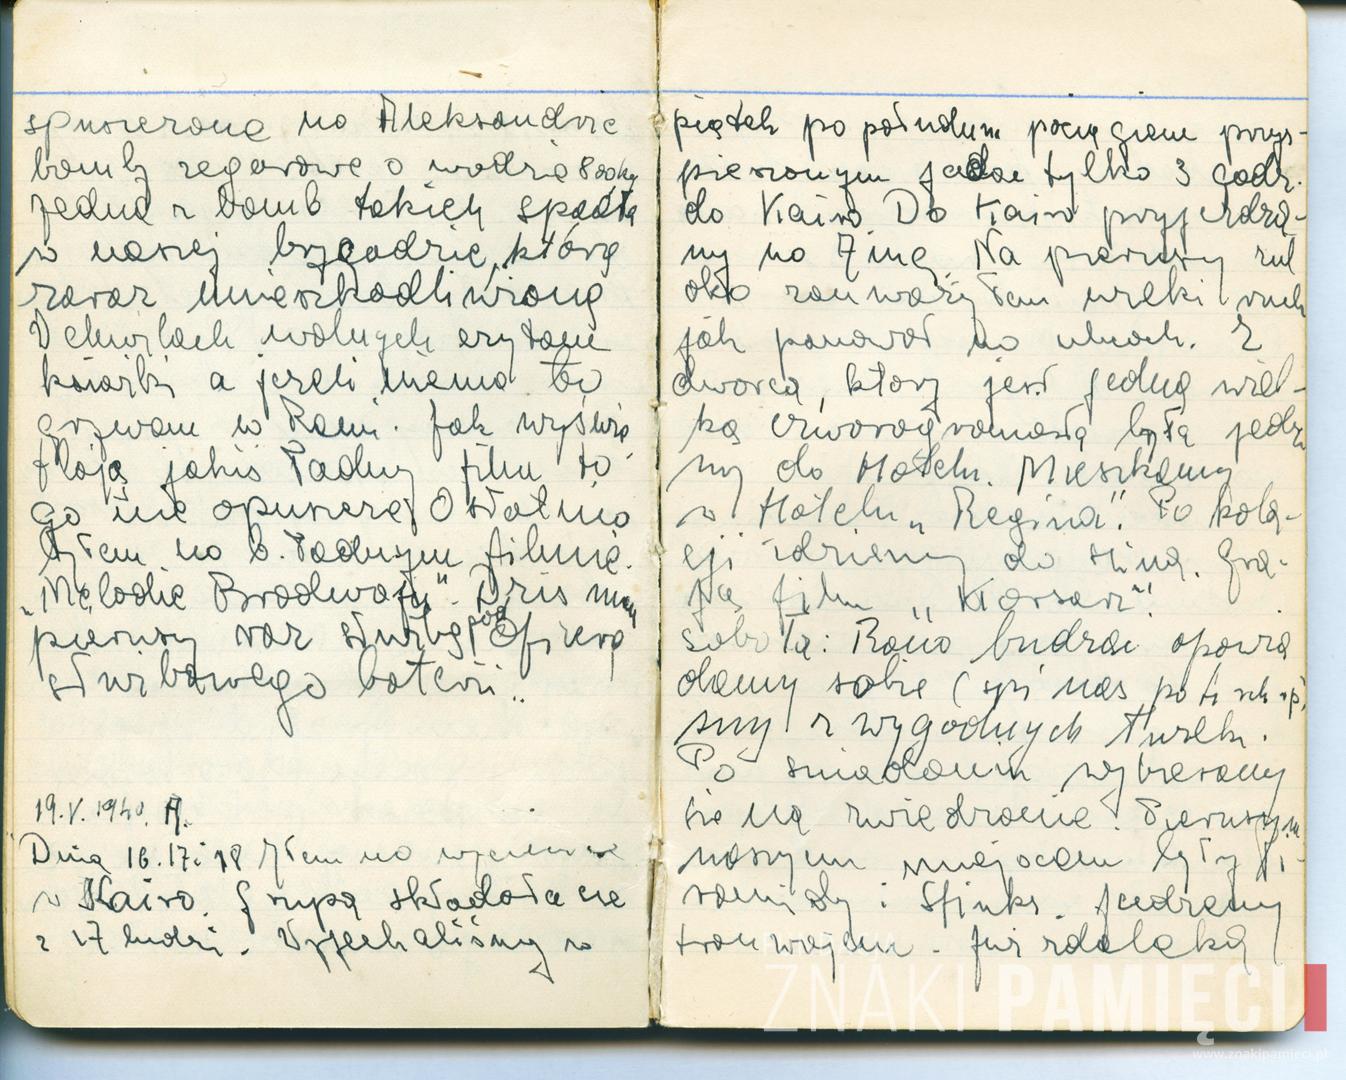 spuszczone na Aleksandrie
bomby zegarowe o wadze 800 kg
jedna z bomb takich spadła
w naszej brygadzie, którą
zaraz unieszkodliwiono
W chwilach wolnych czytam
książki a jeżeli niema to
grywam w Remi. Jak wyświe
tlają jakiś ładny film to
go nie opuszczę. Ostatnio
byłem na b. ładnym filmie.
"Melodie Brodwaju". Dziś mam
pierwszy raz służbę pod Oficera
służbowego baterii.
19.V.1940. A.
Dnia 16. 17 i 18 byłem na wycieczce
w Kairo. Grupa składała się
z 17 ludzi. Wyjechaliśmy w
piątek po południu pociągiem przys-
pieszonym jadac tylko 3 godz.
do Kairo Do Kairo przyjeżdża-
my na 7 mą. Na pierwszy rzut
oka zauważyłem wielki ruch
jak panował na ulicach. Z
dworca, który jest jedną wiel-
ką czworogramastą bryłą jedzie
my do Hotelu. Mieszkamy
w Hotelu "Regina". Po kola-
cji idziemy do kina. Gra-
ją film "Korsarz".
sobota: Rano budząc opowia
damy sobie (spi nas po
smy z wygodnych łóżek.
Po śniadaniu wybieramy
sie na zwiedzanie. Pierwszym
naszym miejscem były Pi-
ramidy i Sfinks. Jedziemy
tramwajem. Już zdaleka
ZNAKI PAMIĘCI
www.znakipamieci.pl